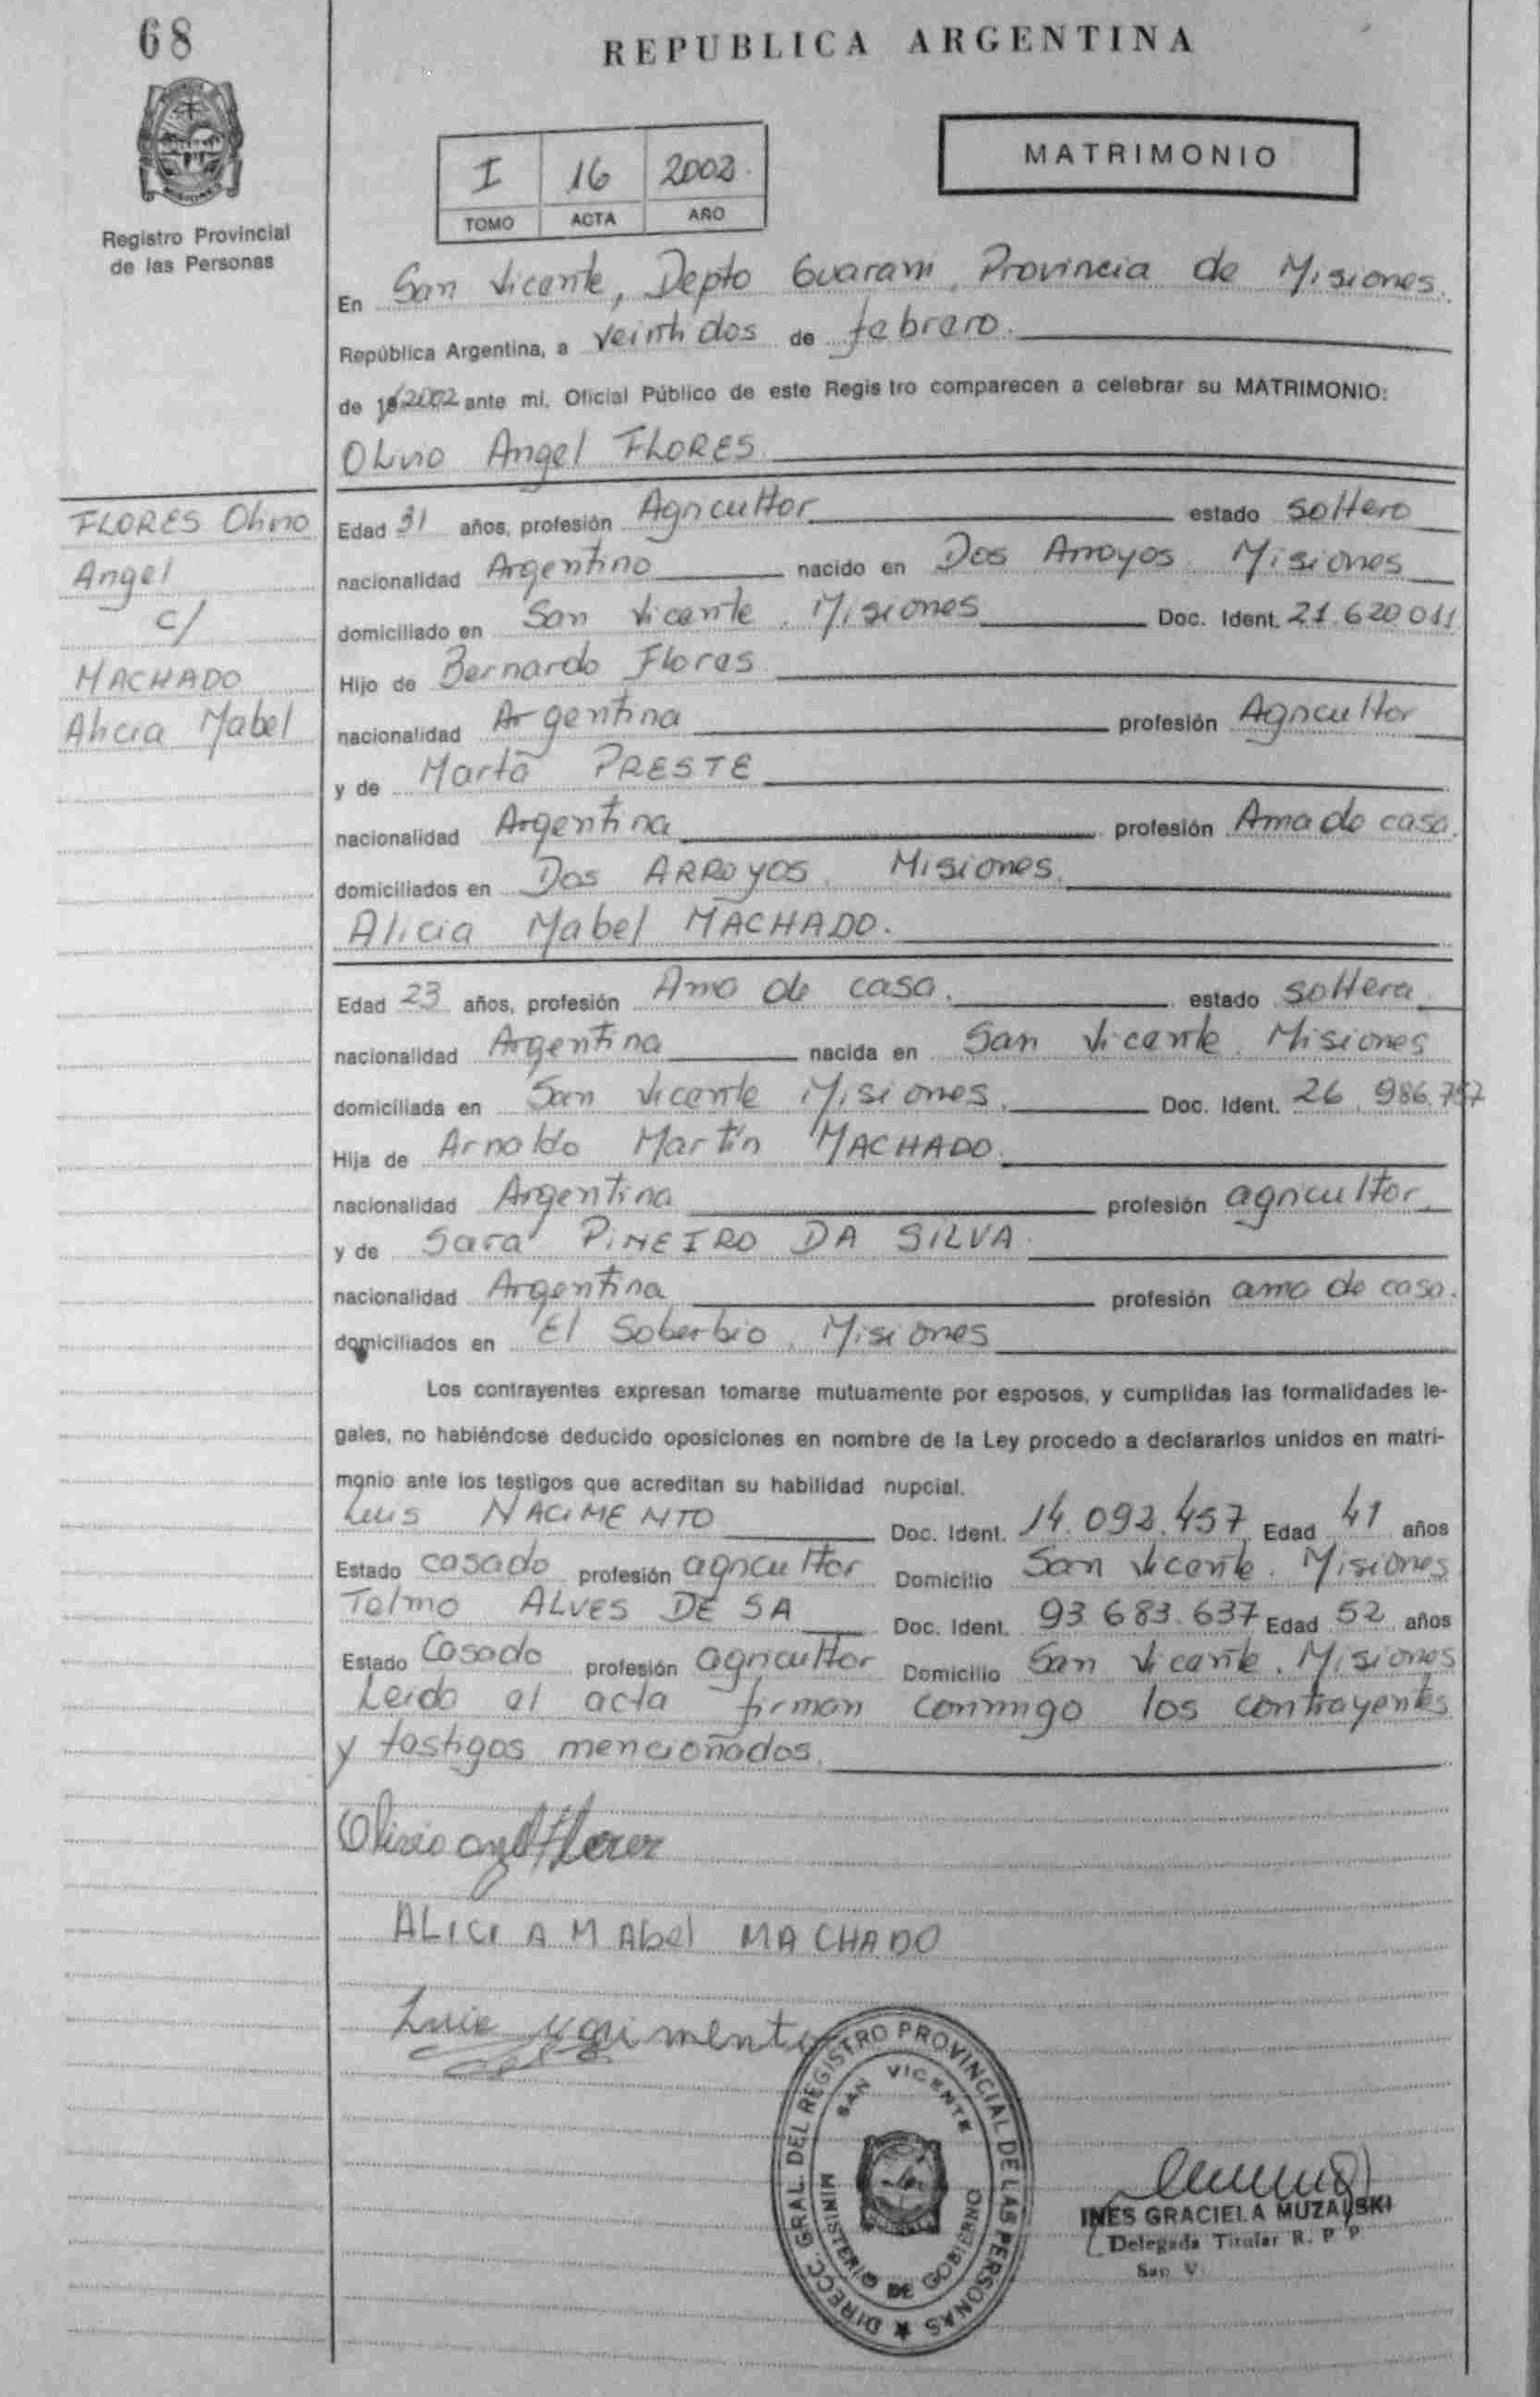 68
REPUBLICA ARGENTINA
Registro Provincial
de las Personas
I 16 2002
TOMO ACTA AÑO
MATRIMONIO
En San Vicente, Depto Guaraní, Provincia de Misiones.
República Argentina, a Veintidos de febrero.
de 2002 ante mi, Oficial Público de este Registro comparecen a celebrar su MATRIMONIO:
Olivio Angel FLORES
FLORES Olivio
Angel
c/
MACHADO
Alicia Mabel
Edad 31 años, profesión Agricultor estado soltero
nacionalidad Argentino nacido en Dos Arroyos Misiones
domiciliado en San Vicente, Misiones Doc. Ident. 21.620011
Hijo de Bernardo Flores
nacionalidad Argentina profesión Agricultor
y de Marta PRESTE
nacionalidad Argentina profesión Ama de casa.
domiciliados en Dos ARROYOS, Misiones.
Alicia Mabel MACHADO.
Edad 23 años, profesión Ama de casa. estado soltera
nacionalidad Argentina nacida en San Vicente, Misiones
domiciliada en San Vicente Misiones. Doc. Ident. 26.986.757
Hija de Arnoldo Martín MACHADO.
nacionalidad Argentina profesión agricultor.
y de Sara PINEIRO DA SILVA
nacionalidad Argentina profesión ama de casa.
domiciliados en El Soberbio, Misiones
Los contrayentes expresan tomarse mutuamente por esposos, y cumplidas las formalidades le-
gales, no habiéndose deducido oposiciones en nombre de la Ley procedo a declararlos unidos en matri-
monio ante los testigos que acreditan su habilidad nupcial.
Luis NACIMENTO Doc. Ident. 14.092.457 Edad 41 años
Estado casado profesión agricultor Domicilio San Vicente, Misiones
Telmo ALVES DE SA Doc. Ident. 93.683.637 Edad 52 años
Estado Casado profesión agricultor Domicilio San Vicente, Misiones
Leido el acta firman conmigo los contrayentes
y testigos mencionados.
Olivio angel Flores
ALICIA MAbel MACHADO
Luis
DIRECC. GRAL. DEL REGISTRO PROVINCIAL DE LAS PERSONAS
SAN VICENTE
MINISTERIO DE GOBIERNO
INES GRACIELA MUZALSKI
Delegada Titular R. P. P.
San V.